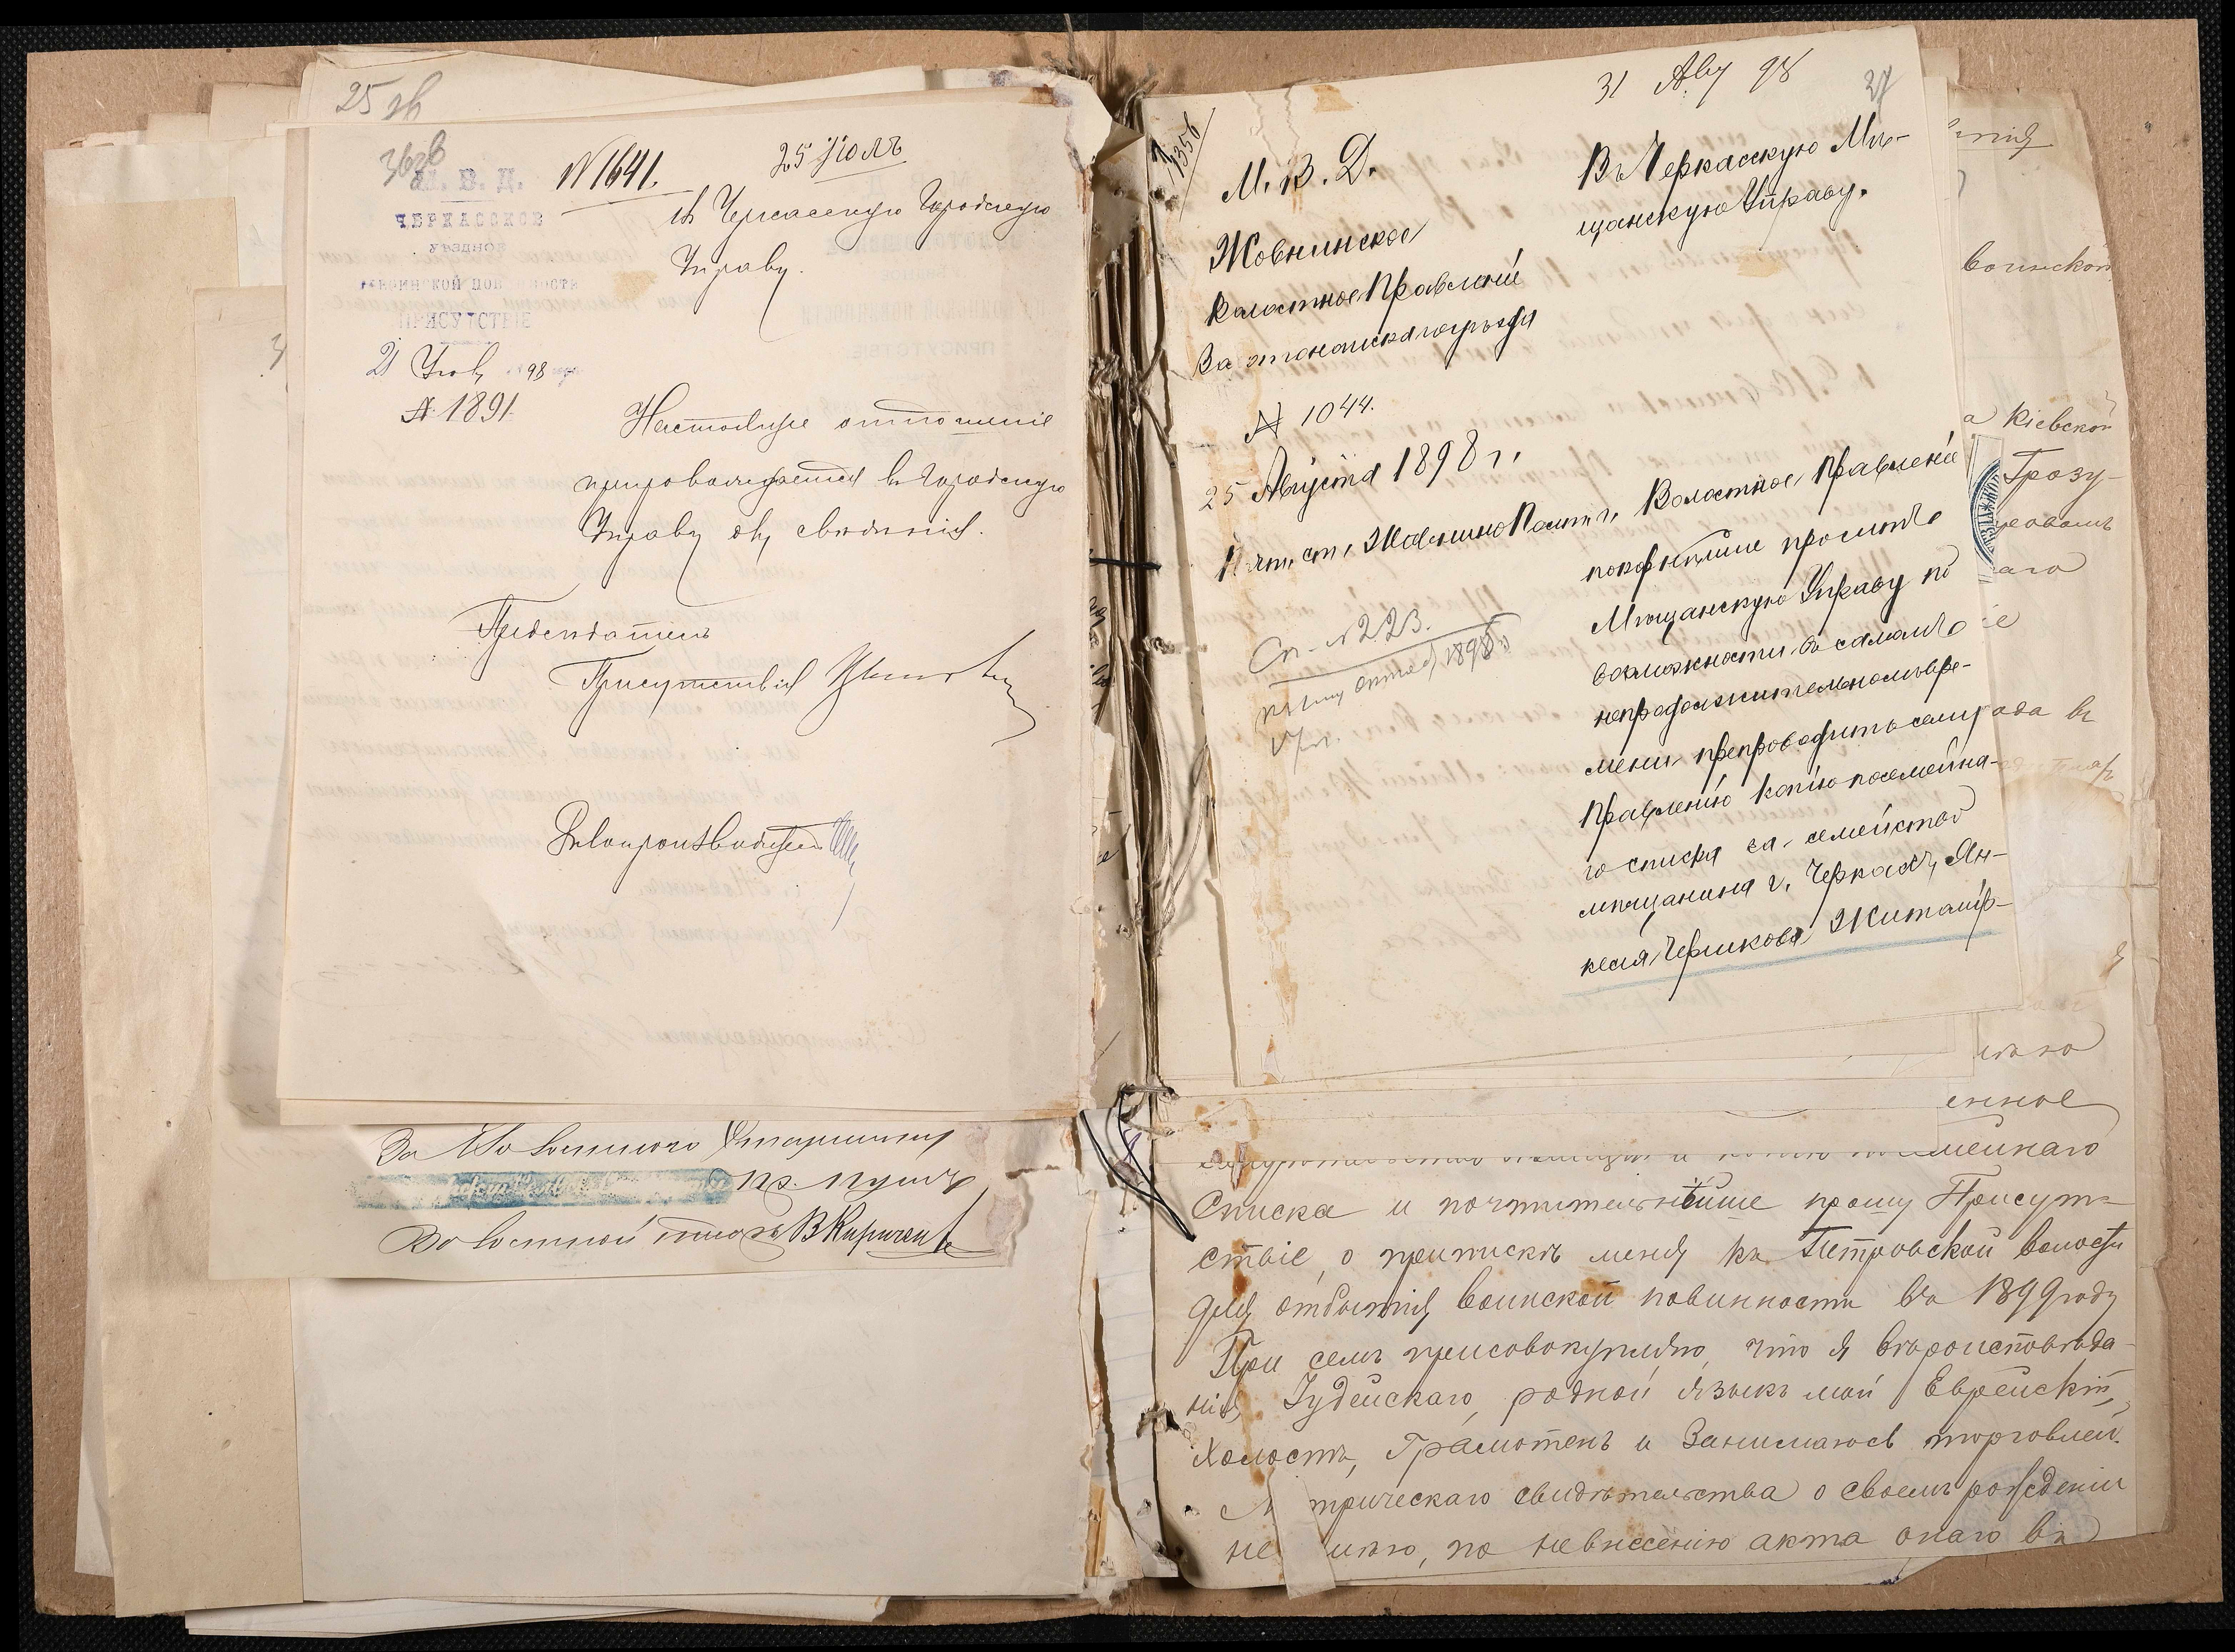 25 зв
36 зв
М. В. Д.
ЧЕРКАССКОЕ
УѢЗДНОЕ
ВОИНСКОЙ ПОВИННОСТИ
ПРИСУТСТВІЕ
21 98
№ 1891
№ 1641.
25 Іюля
въ Черкасскую Городскую
Управу.
Настоящее отношеніе
препровождается въ Городскую
Управу
Предсѣдатель
Присутствія
Дѣлопроизводитель
За Волостного Старшину
Волостной писарь В Кириченко
31 Авг 98
27
1356
М. В. Д.
Жовнинское
Волостное Правленіе
Золотоношскаго уѣзда
№ 1044.
25 Августа 1898 г.
Почт. ст. Жовнино Полт. г.
Въ Черкасскую Мѣ-
щанскую Управу.
Сп. № 223.
1898 г.
Волостное Правленіе
покорнѣйше проситъ
Мѣщанскую Управу по
возможности въ самомъ
непродолжительномъ вре-
мени препроводить сему
Правленію копію посемейна-
го списка за семейство
мѣщанина г. Черкасъ, Ян-
келя Черикова Житомір-
воинской
а Кіевской
Грозу-
аго
ада въ
енное
мейнаго
Списка и почтительнѣйше прошу Присут-
ствіе, о припискѣ меня къ Петровской волости
для отбытія воинской повинности въ 1899 году
При семъ присовокупляю, что я вѣроисповѣда-
нія Іудейскаго, родной языкъ мой Еврейскій,
Холостъ, Грамотенъ и Занимаюсь торговлей.
М трическаго свидѣтельства о своемъ рожденіи
не имѣю, по невнесенію акта онаго въ